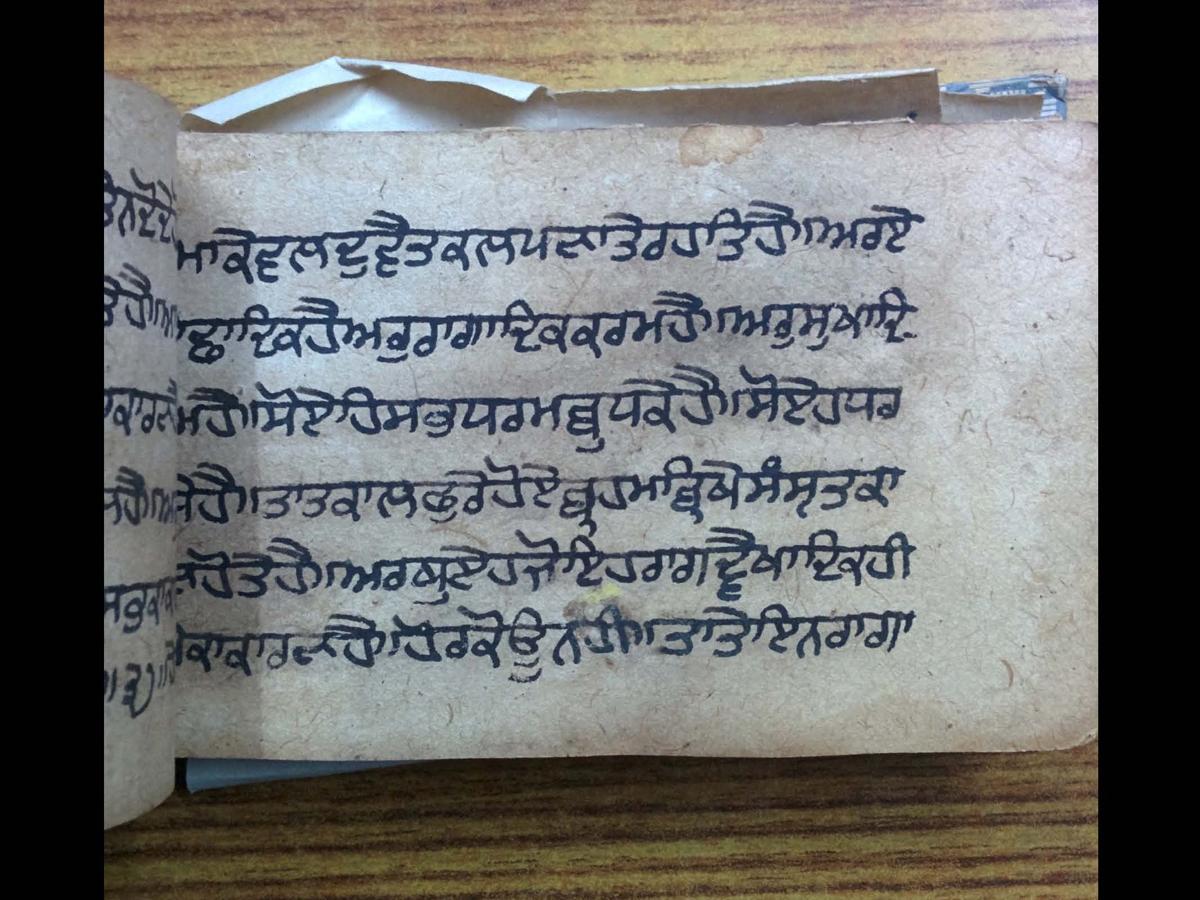 ਮਾਕੇਵਲਦੁਵੈਤਕਲਪਣਾਤੇਰਹਤਿਹੈ॥ਅਰਏ
ਛਾਦਿਕਹੈਅਰੁਰਾਗਾਦਿਕਕਰਮਹੈ॥ਅਰੁਸੁਖਾਦਿ
ਮਹੈ॥ਸੋਏਹਿਸਭੁਧਰਮਬੁਧਕੇਹੈ॥ਸੋਏਹਧਰ
ਹੈ॥ਤਾਤਕਾਲਫੁਰੇਹੋਏਬ੍ਰਹਮਾਬ੍ਰਿਖੇਸੰਸ੍ਰਤਕਾ
ਹੋਤੇਹੈ॥ਅਰਬੁਏਹਜੋਇਹਰਾਗਦ੍ਵੈਖਾਦਿਕਹੀ
ਕਾਕਾਰਣਹੈ॥ਹੋਰਕੋਊਨਹੀ॥ਤਾਤੇਇਨਰਾਗਾ